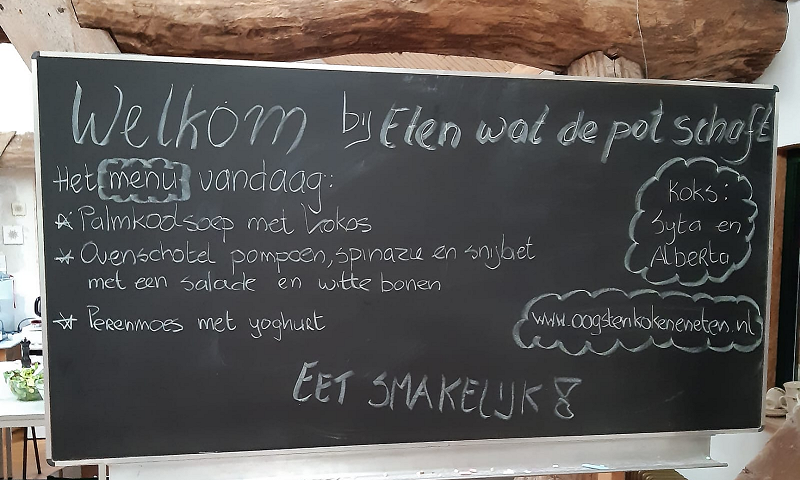 Welkom bij Eten wat de pot schaft
Het menu vandaag:
* Palmkoolsoep met kokos
* Ovenschotel pompoen, spinazie en snijbiet
met een salade en witte bonen
* Perenmoes met yoghurt
Koks:
Syta en
Alberta
www.oogstenkokeneneten.nl
EET SMAKELIJK!